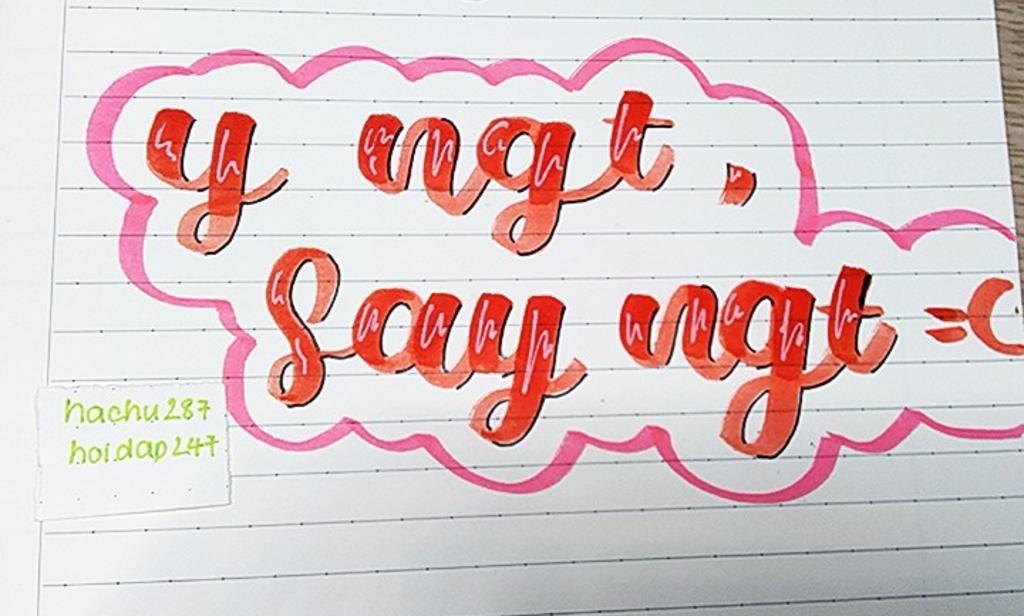 y ngt,
Say ngt =(
hachu287
hoidap247